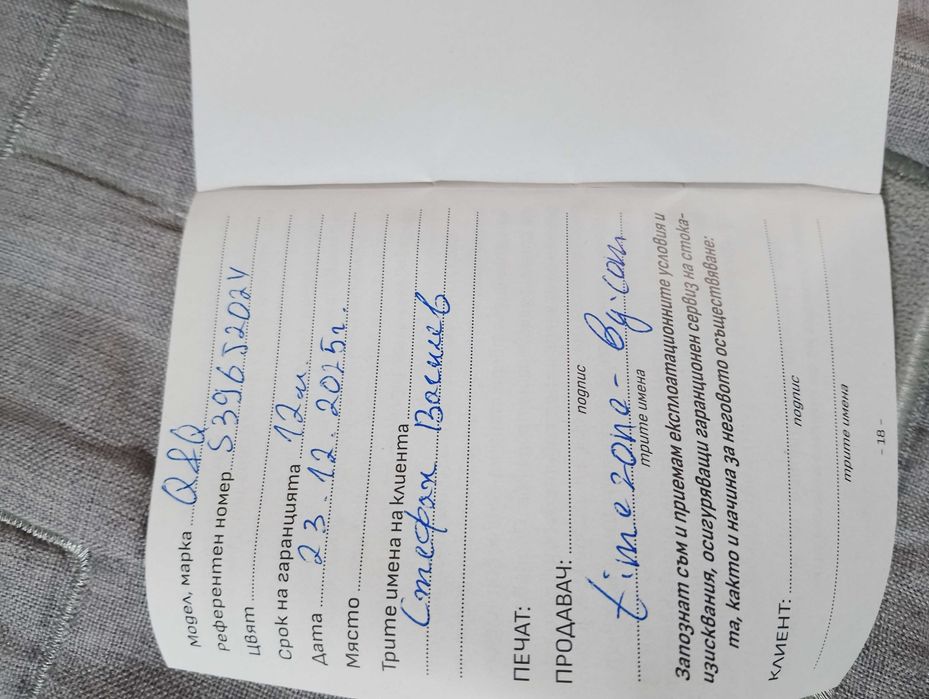 Модел, марка Q&Q
Референтен номер S396J202Y
Цвят
Срок на гаранцията 12 м.
Дата 23.12.2025 г.
Място
Трите имена на клиента
Стефан Василев
ПЕЧАТ:
ПРОДАВАЧ:
подпис
timezone-bg.com
трите имена
Запознат съм и приемам експлоатационните условия и
изисквания, осигуряващи гаранционен сервиз на стока-
та, както и начина за неговото осъществяване:
КЛИЕНТ:
подпис
трите имена
- 18 -